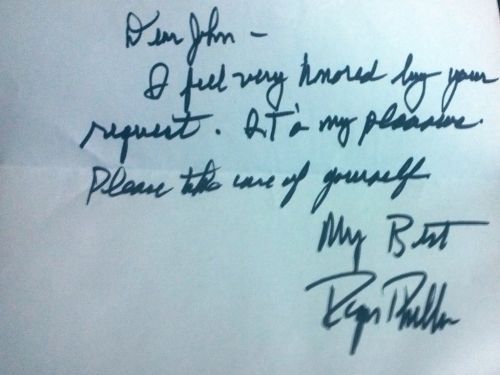 Dear John —
I feel very honored by your
request. It's my pleasure.
Please take care of yourself
My Best